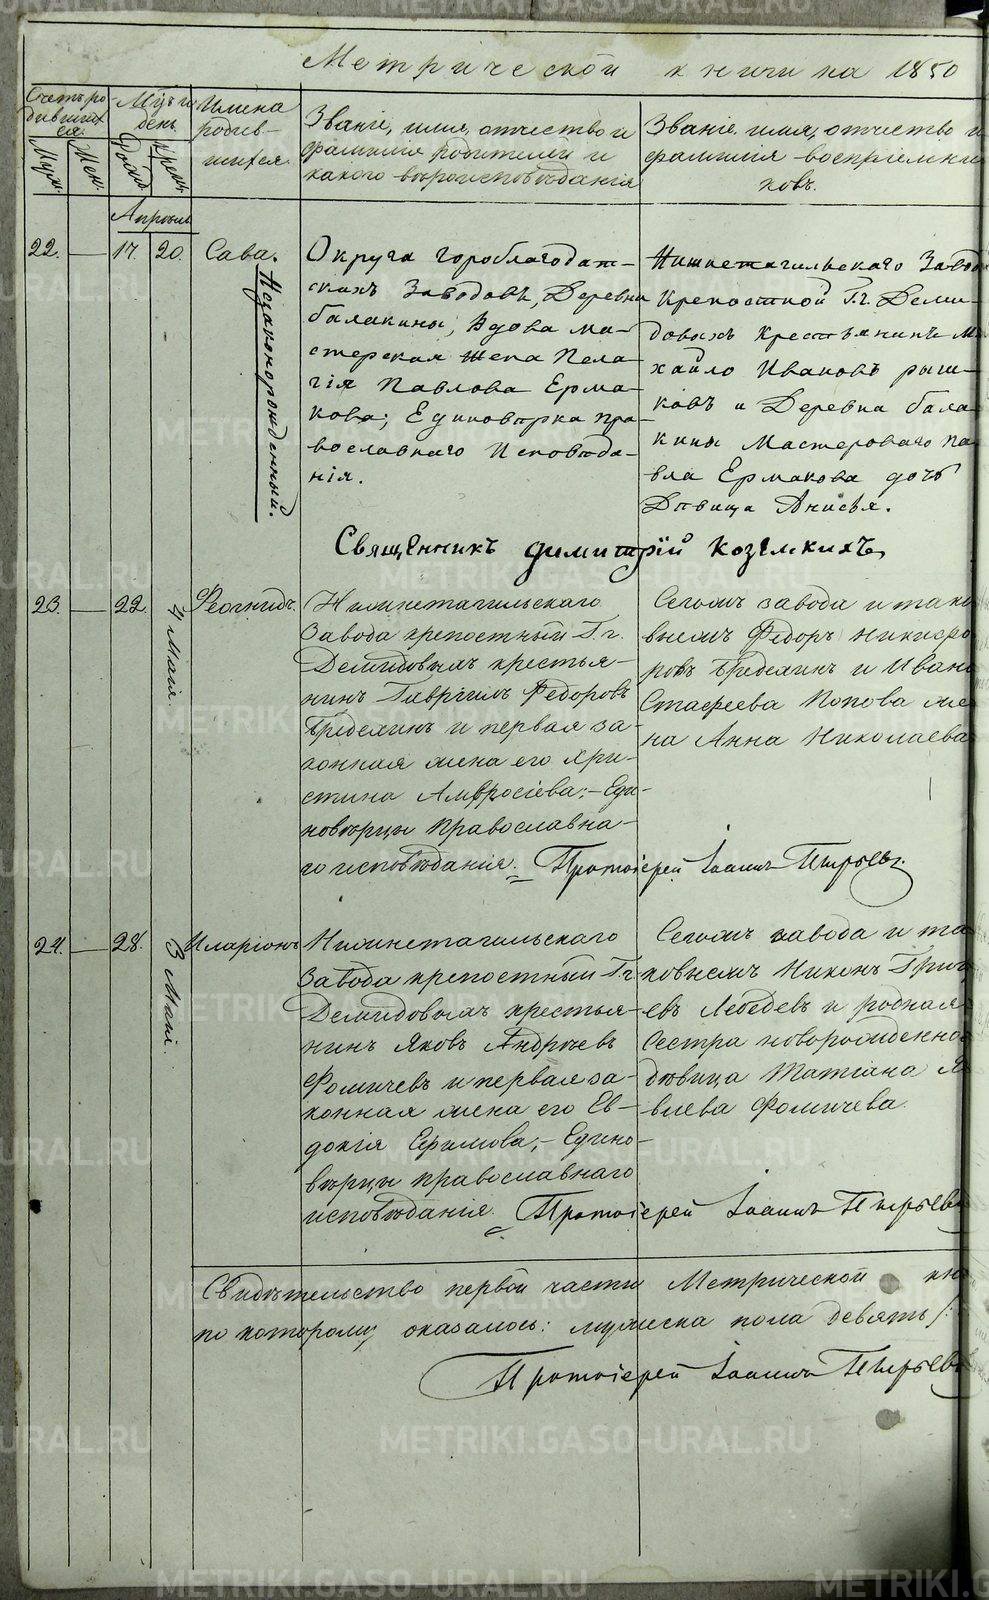 Метрической книги на 1850
Счетъ ро-
дивших
ся.
Муж.
Жен.
Мѣс. и
день
рожд
крещ
Имена
родив-
шихся.
Званіе, имя, отчество и
фамилія родителей и
какого вѣроисповѣданія
Званіе, имя, отчество и
фамилія воспріемни
ковъ.
Апрѣль
22. — 17. 20. Сава.
Незаконорожденный.
Округа гороблагодат-
скихъ Заводовъ, Деревни
балакины, Вдова ма-
стерская жена Пела-
гія Павлова Ерма-
кова; Единовѣрка пра-
вославнаго Исповѣда-
нія.
Нижнетагильскаго Завод
Крепостной Г.г. Деми-
довыхъ крестьянинъ Ми
хайло Ивановъ рыш-
ковъ и Деревни бала-
кины Мастероваго Па-
вла Ермакова дочь
Дѣвица Анисья.
Священникъ Димитрій Козельскихъ
23. — 22. 4 Маія. Феогнидъ
Нижнетагильскаго
Завода крепостный Г.г.
Демидовыхъ крестья-
нинъ Гавріилъ Федоровъ
Бределинъ и первая за-
конная жена его Хри-
стина Амвросіева; — Еди-
новѣрцы Православна-
го исповѣданія.
Сегожъ завода и тако
выежъ Федоръ Никифо
ровъ Бределинъ и Ивана
Стафеева Попова же
на Анна Николаева
Протоіерей Іоаннъ Пырьевъ.
24. — 28. 3 Маія. Иларіонъ
Нижнетагильскаго
Завода крепостный Г.г
Демидовыхъ крестья-
нинъ Яковъ Андреевъ
Фомичевъ и первая за-
конная жена его Ев-
докія Ефимова; — Едино-
вѣрцы православнаго
исповѣданія.
Сегожъ завода и та
ковыежъ Никонъ Григ
евъ Лебедевъ и родная
Сестра новорожденно
дѣвица Татіана Я
влева Фомичева.
Протоіерей Іоаннъ Пырьевъ
Свидѣтельство первой части Метрической кн
по которому оказалось: мужеска пола девять /:
Протоіерей Іоаннъ Пырьевъ
METRIKI.GASO-URAL.RU